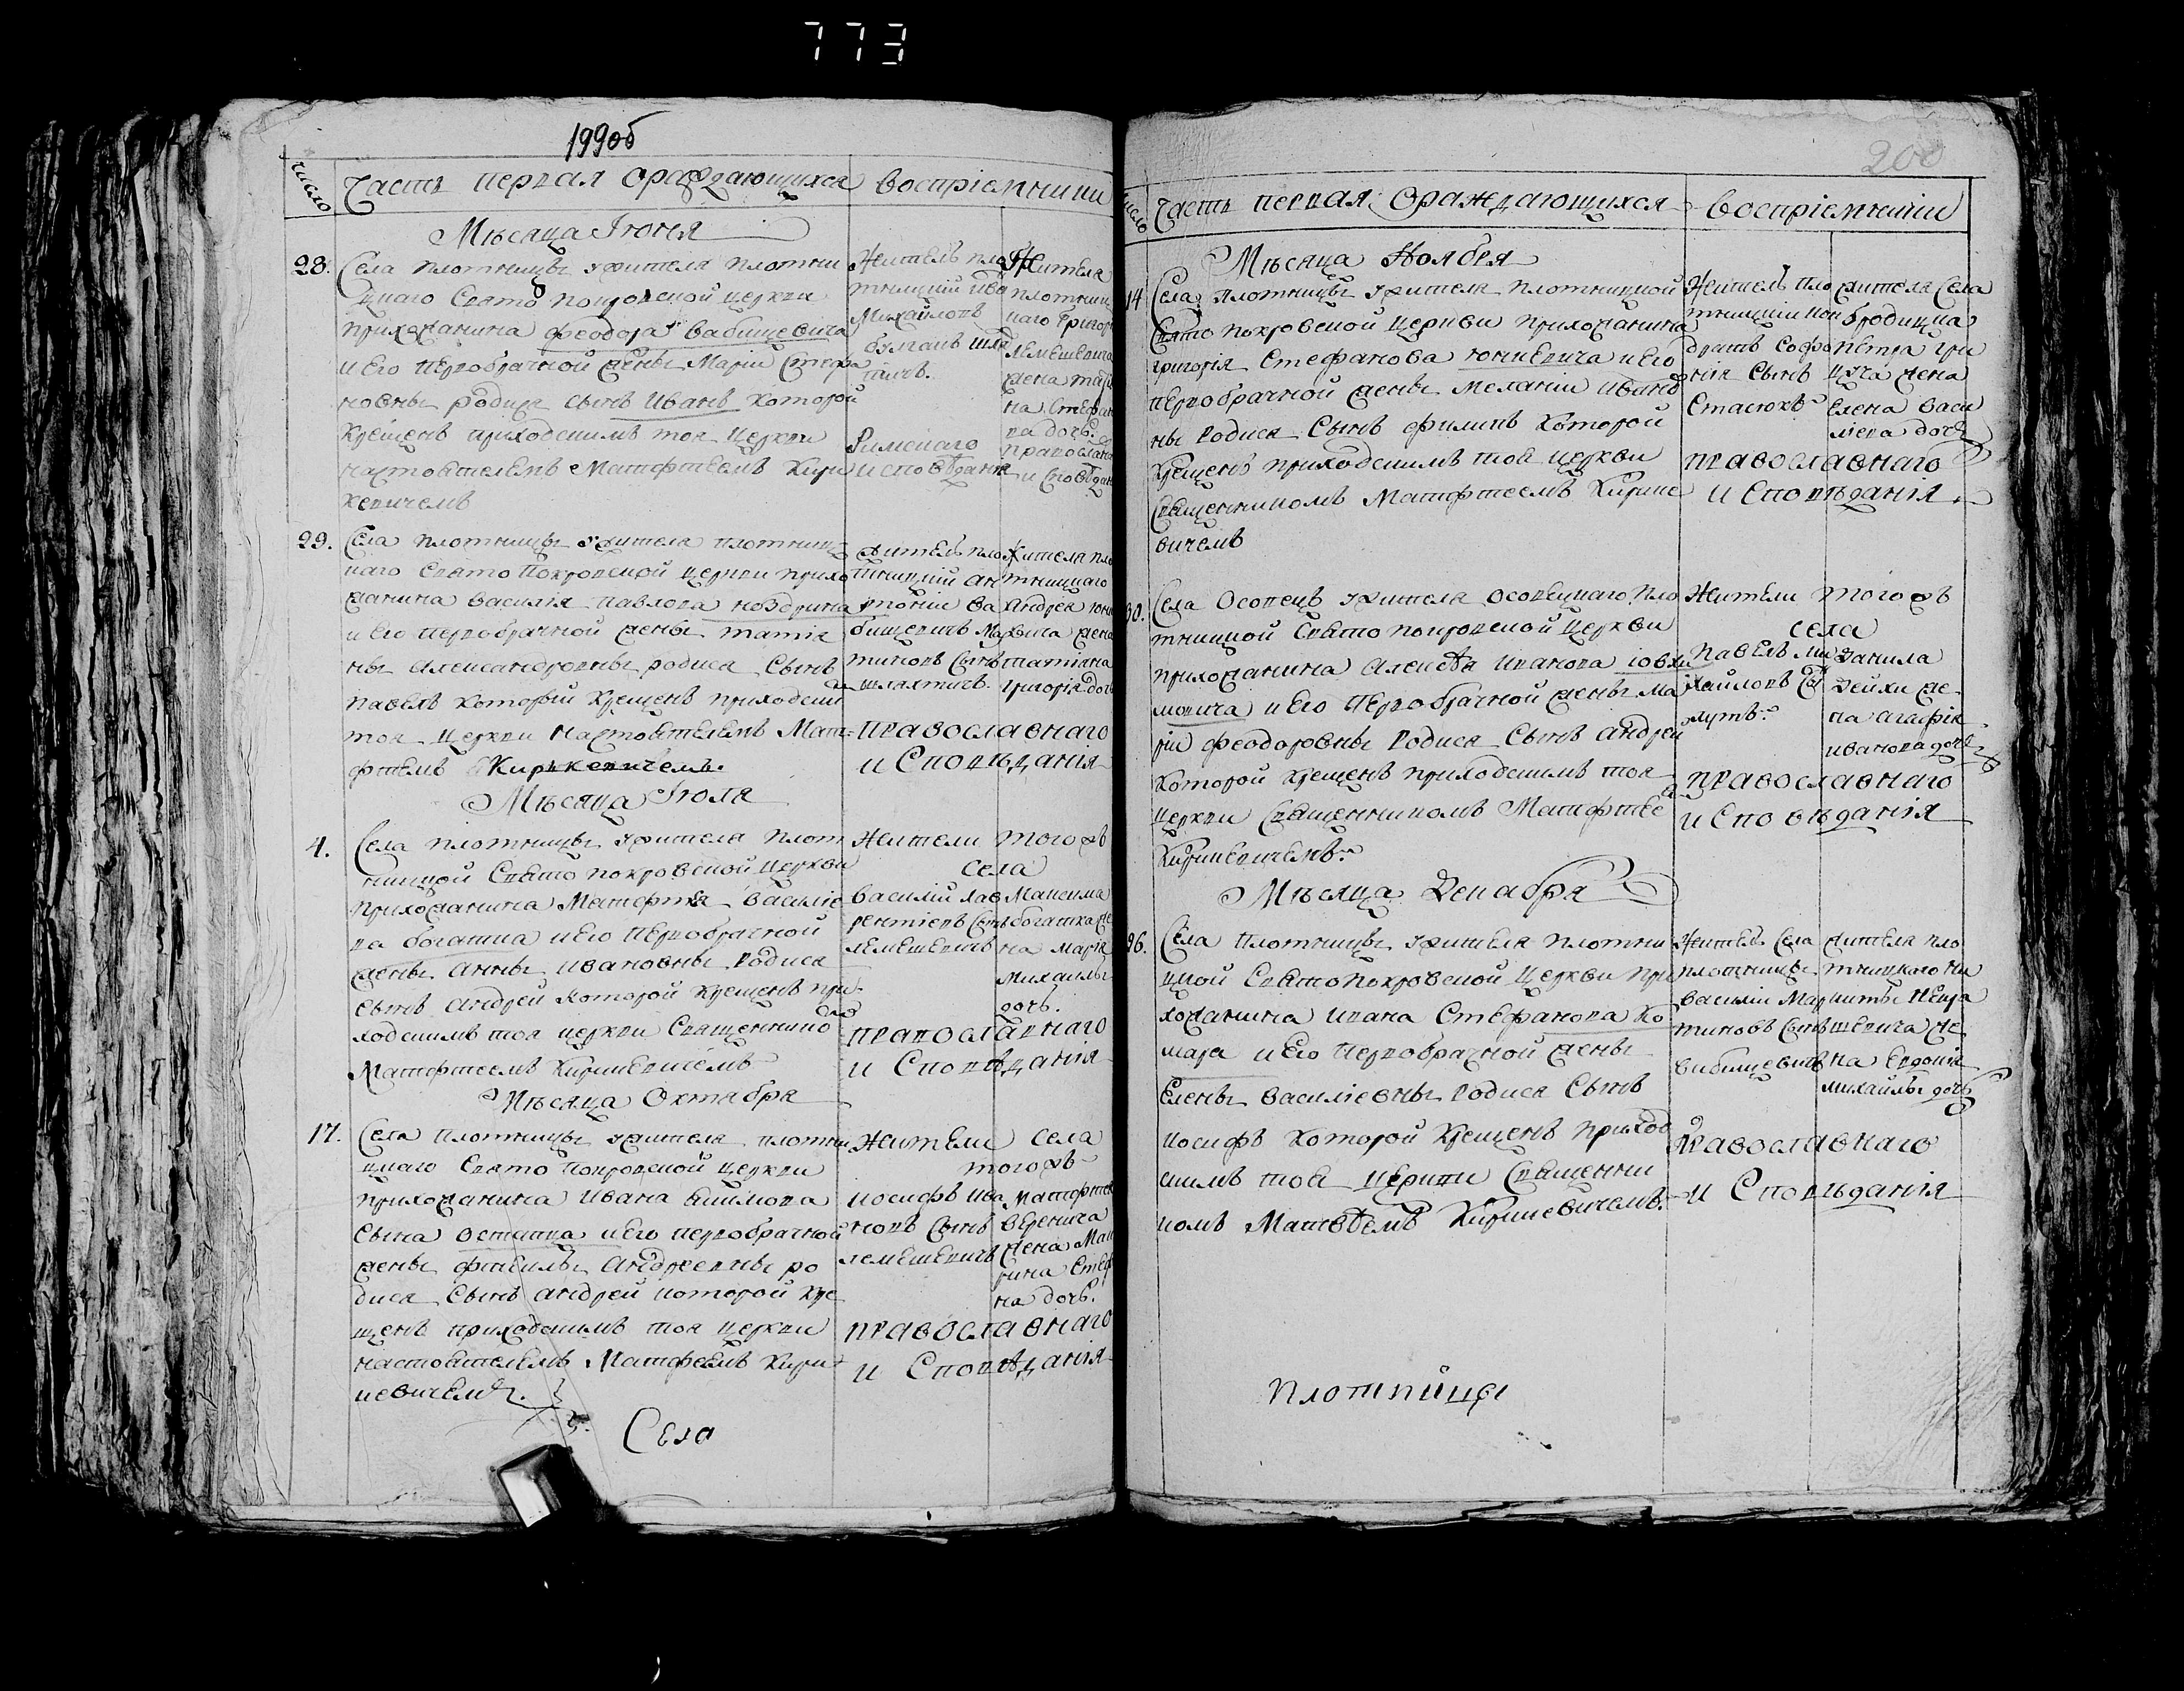 773
199об
число
Часть первая ораждающихся
воспріемники
Мѣсяца Іюня
28.
Села Плотницы жителя плотни
цкаго Свято Покровской церкви
прихожанина Феодора Бабицевича
и Его первобрачной жены Маріи Стефа
новны родися сынъ Иванъ которой
крещенъ приходскимъ тоя церкви
настоятелемъ Матфтеемъ Кири
кевичемъ
Житель пло
тницкій Ива
Михайловъ
шля
тичъ.
Римскаго
исповѣдания
Жителя
плотниц
каго Григорі
Лемешевича
жена
на Стефан
ва дочь.
православна
и споведан
29.
Села Плотницы жителя плотниц
каго Свято Покровской церкви прихо
жанина Василія Павлова
и Его первобрачной жены татія
ны Александровны родися Сынъ
павелъ которой крещенъ приходски
тоя церкви настоятелемъ Мат=
фтемъ Кирикевичемъ.
житель пло
тницкій Ан
тоній Ба
бицевичъ Мар
тиновъ Сынъ
шляхтичъ.
Жителя пло
тницкаго
Андрея Юни
жена
татіяна
григорія дочь
православнаго
и Споведанія
Мѣсяца Іюля
4.
Села Плотницы жителя Плот
ницкой Свято Покровской церкви
Прихожанина Матфтя Василіе
ва богатка и Его первобрачной
жены Анны Ивановны Родися
Сынъ Андрей которой крещенъ при
ходскимъ тоя церкви Священнико
Матфтеемъ Кирикевичемъ
Жители того жъ
села
Василій Лав
рентіевъ Сынъ
Лемешевичъ
Максима
богатка же
на Марія
Михайлы
дочь.
православнаго
и Споведанія
Мѣсяца Октября
17.
Села Плотницы жителя плотни
цкаго Свято Покровской церкви
прихожанина Ивана
Сына Остапца и Его первобрачной
жены Андреевны ро
дися Сынъ Андрей которой кре
щенъ приходскимъ тоя церкви
настоятелемъ Матфеемъ Кири
кевичемъ.
Жители села
того жъ
Іосифъ Ива
новъ Сынъ
Лемешевичъ
Матфтея
Веренича
жена Мак
рина Стеф
на дочь.
православнаго
и Споведанія
Села
200
число
Часть первая Ораждающихся
Воспріемники
Мѣсяца Ноября
14
Села Плотницы жителя Плотницкой
Свято Покровской Церкви Прихожанина
григорія Стефанова Юнкевича и Его
первобрачной жены Меланіи Ивано
ны Родися Сынъ филипъ Которой
крещенъ приходскимъ тоя церкви
Священникомъ Матфтеемъ Кирике
вичемъ
Житель Пло
тницкій Кон
дратъ Софро
нія Сынъ
Стасюкъ
жителя Села
бродицка
петра Гри
цука жена
Елена Васи
лієва дочь
православнаго
и Споведанія
30.
Села Осовецъ жителя Осовецкаго Пло
тницкой Свято Покровской Церкви
прихожанина Алексѣя Иванова Іовхи
мовича и Его Первобрачной жены Ма
ріи Феодоровны Родися Сынъ Андрей
Которой крещенъ приходскимъ тоя
церкви Священникомъ Матфтее
Кирикевичемъ
Жители того жъ
села
Павелъ Ми
хайловъ
Данила
Дейки же
на Агафія
иванова дочь
православнаго
и Споведанія
Мѣсяца Декабря
26.
Села Плотницы жителя Плотни
цкой Свято Покровской Церкви при
хожанина Ивана Стефанова Ко
мара и Его Первобрачной жены
Елены Василіевны Родися Сынъ
Іосифъ Которой Крещенъ Приход
скимъ тоя церкви Священни
комъ Матвѣемъ Кирикевичемъ.
Житель Села
плотницы
Василій Мар
тиновъ Сынъ
Бабицевичъ
жителя пло
тницкаго Ни
киты Петра
шевича же
на Евдокія
Михайлы дочь
Православнаго
и Споведанія
Плотницы